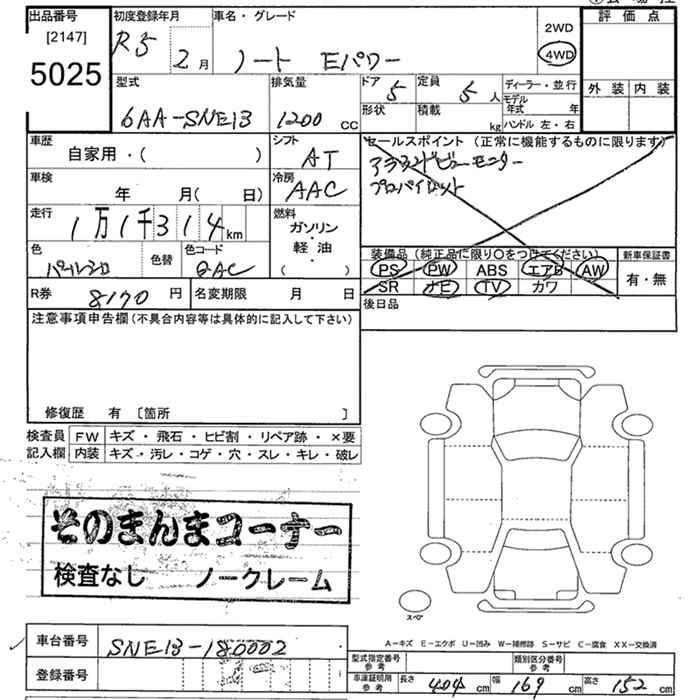 出品番号 初度登録年月 車名・グレード 2WD 評価点
[2147] R5 2月 ノート Eパワー 4WD
5025 型式 排気量 ドア 5 定員 5人 ディーラー・並行 外装 内装
6AA-SNE13 1200cc 形状 積載 kg モデル年式 年
ハンドル 左・右
車歴 シフト セールスポイント (正常に機能するものに限ります)
自家用・( ) AT アラウンドビューモニター
車検 冷房 プロパイロット
年 月( 日) AAC
走行 1万1千314km 燃料
ガソリン・軽油・( )
色 パールシロ 色替 色コード QAC
装備品 (純正品に限り○をつけてください) 新車保証書
PS PW ABS エアB AW 有・無
SR ナビ TV カワ
R券 8170円 名変期限 月 日 後日品
注意事項申告欄(不具合内容等は具体的に記入して下さい)
修復歴 有 [箇所 ]
検査員 FW キズ・飛石・ヒビ割・リペア跡・×要
記入欄 内装 キズ・汚レ・コゲ・穴・スレ・キレ・破レ
そのまんまコーナー
検査なし ノークレーム
スペア
A-キズ E-エクボ U-凹み W-補修跡 S-サビ C-腐食 XX-交換済
車台番号 SNE13-180002
型式指定番号 参考 類別区分番号 参考
登録番号
車庫証明用 参考 長さ 404cm 幅 169cm 高さ 152cm